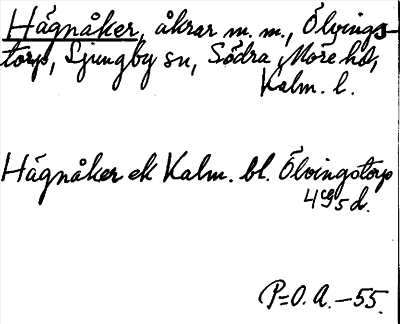 Hägnåker, åkrar m. m., Ölvings-
torp, Ljungby sn, Södra Möre hd,
Kalm. l.
Hägnåker ek Kalm. bl. Ölvingstorp
4 g 5 d.
P=O. A. –55.